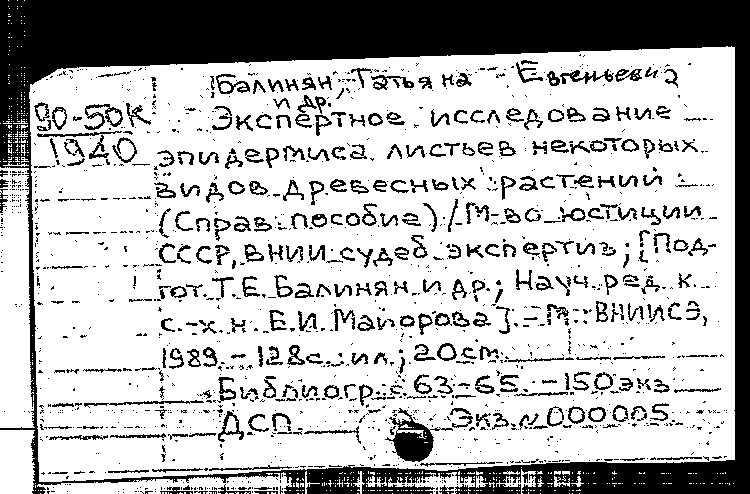 Балинян, Татьяна Евгеньевна
и др.
90-50К Экспертное исследование
1940 эпидермиса листьев некоторых
видов древесных растений :
(Справ. пособие) / М-во юстиции
СССР, ВНИИ судеб. экспертиз ; [Под-
гот. Т.Е. Балинян и др. ; Науч. ред. к.
с.-х. н. Е.И. Майорова]. - М. : ВНИИСЭ,
1989. - 128с. : ил. ; 20см
Библиогр.: с 63-65. - 150 экз
ДСП. Экз. N 000005